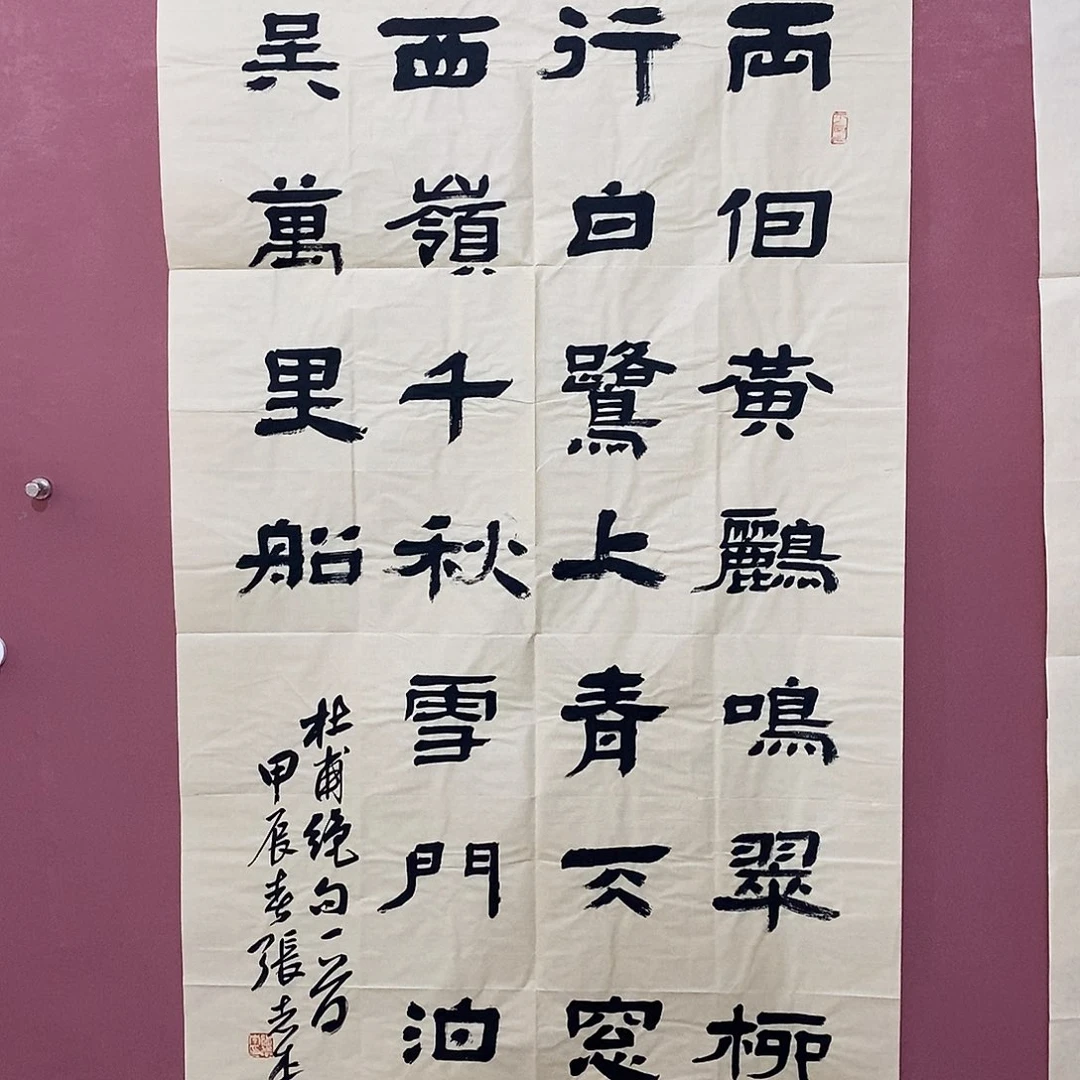 兩個黃鸝鳴翠柳
行白鷺上青天窓
西嶺千秋雪門泊
吳萬里船
杜甫絕句一首
甲辰春張志